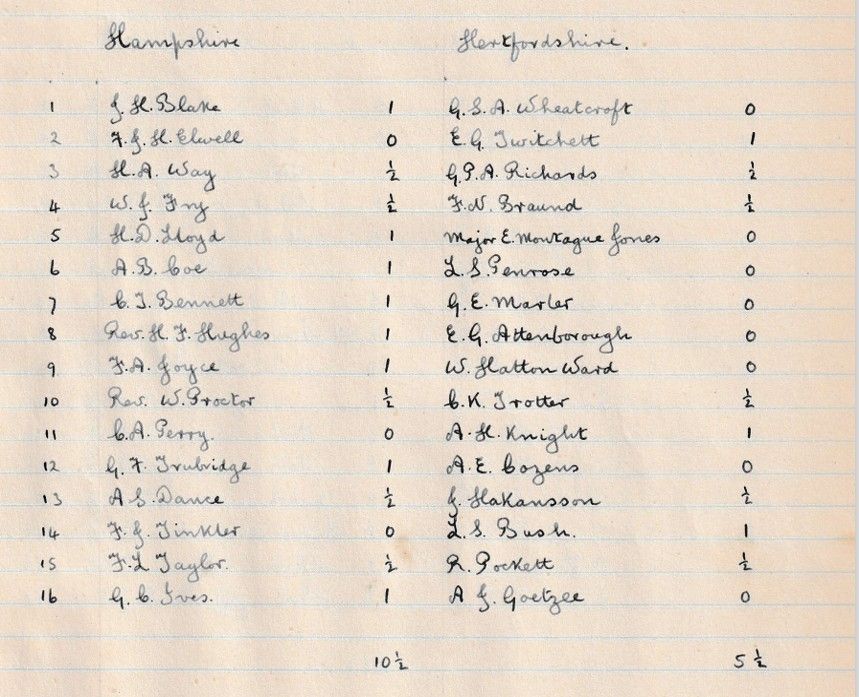 Hampshire Hertfordshire.
1 J. H. Blake 1 G. S. A. Wheatcroft 0
2 F. J. H. Elwell 0 E. G. Twitchett 1
3 H. A. Way ½ G. P. A. Richards ½
4 W. J. Fry ½ F. N. Braund ½
5 H. D. Lloyd 1 Major E. Montague Jones 0
6 A. B. Coe 1 L. S. Penrose 0
7 C. T. Bennett 1 G. E. Marler 0
8 Rev. H. F. Hughes 1 E. G. Attenborough 0
9 F. A. Joyce 1 W. Hatton Ward 0
10 Rev. W. Proctor ½ C. K. Trotter ½
11 C. A. Perry. 0 A. H. Knight 1
12 G. F. Trubridge 1 A. E. Cozens 0
13 A S. Dance ½ J. Hakansson ½
14 F. J. Tinkler 0 L. S. Bush. 1
15 F. L Taylor. ½ R. Pockett ½
16 G. C. Ives. 1 A J. Goetzee 0
10 ½ 5 ½